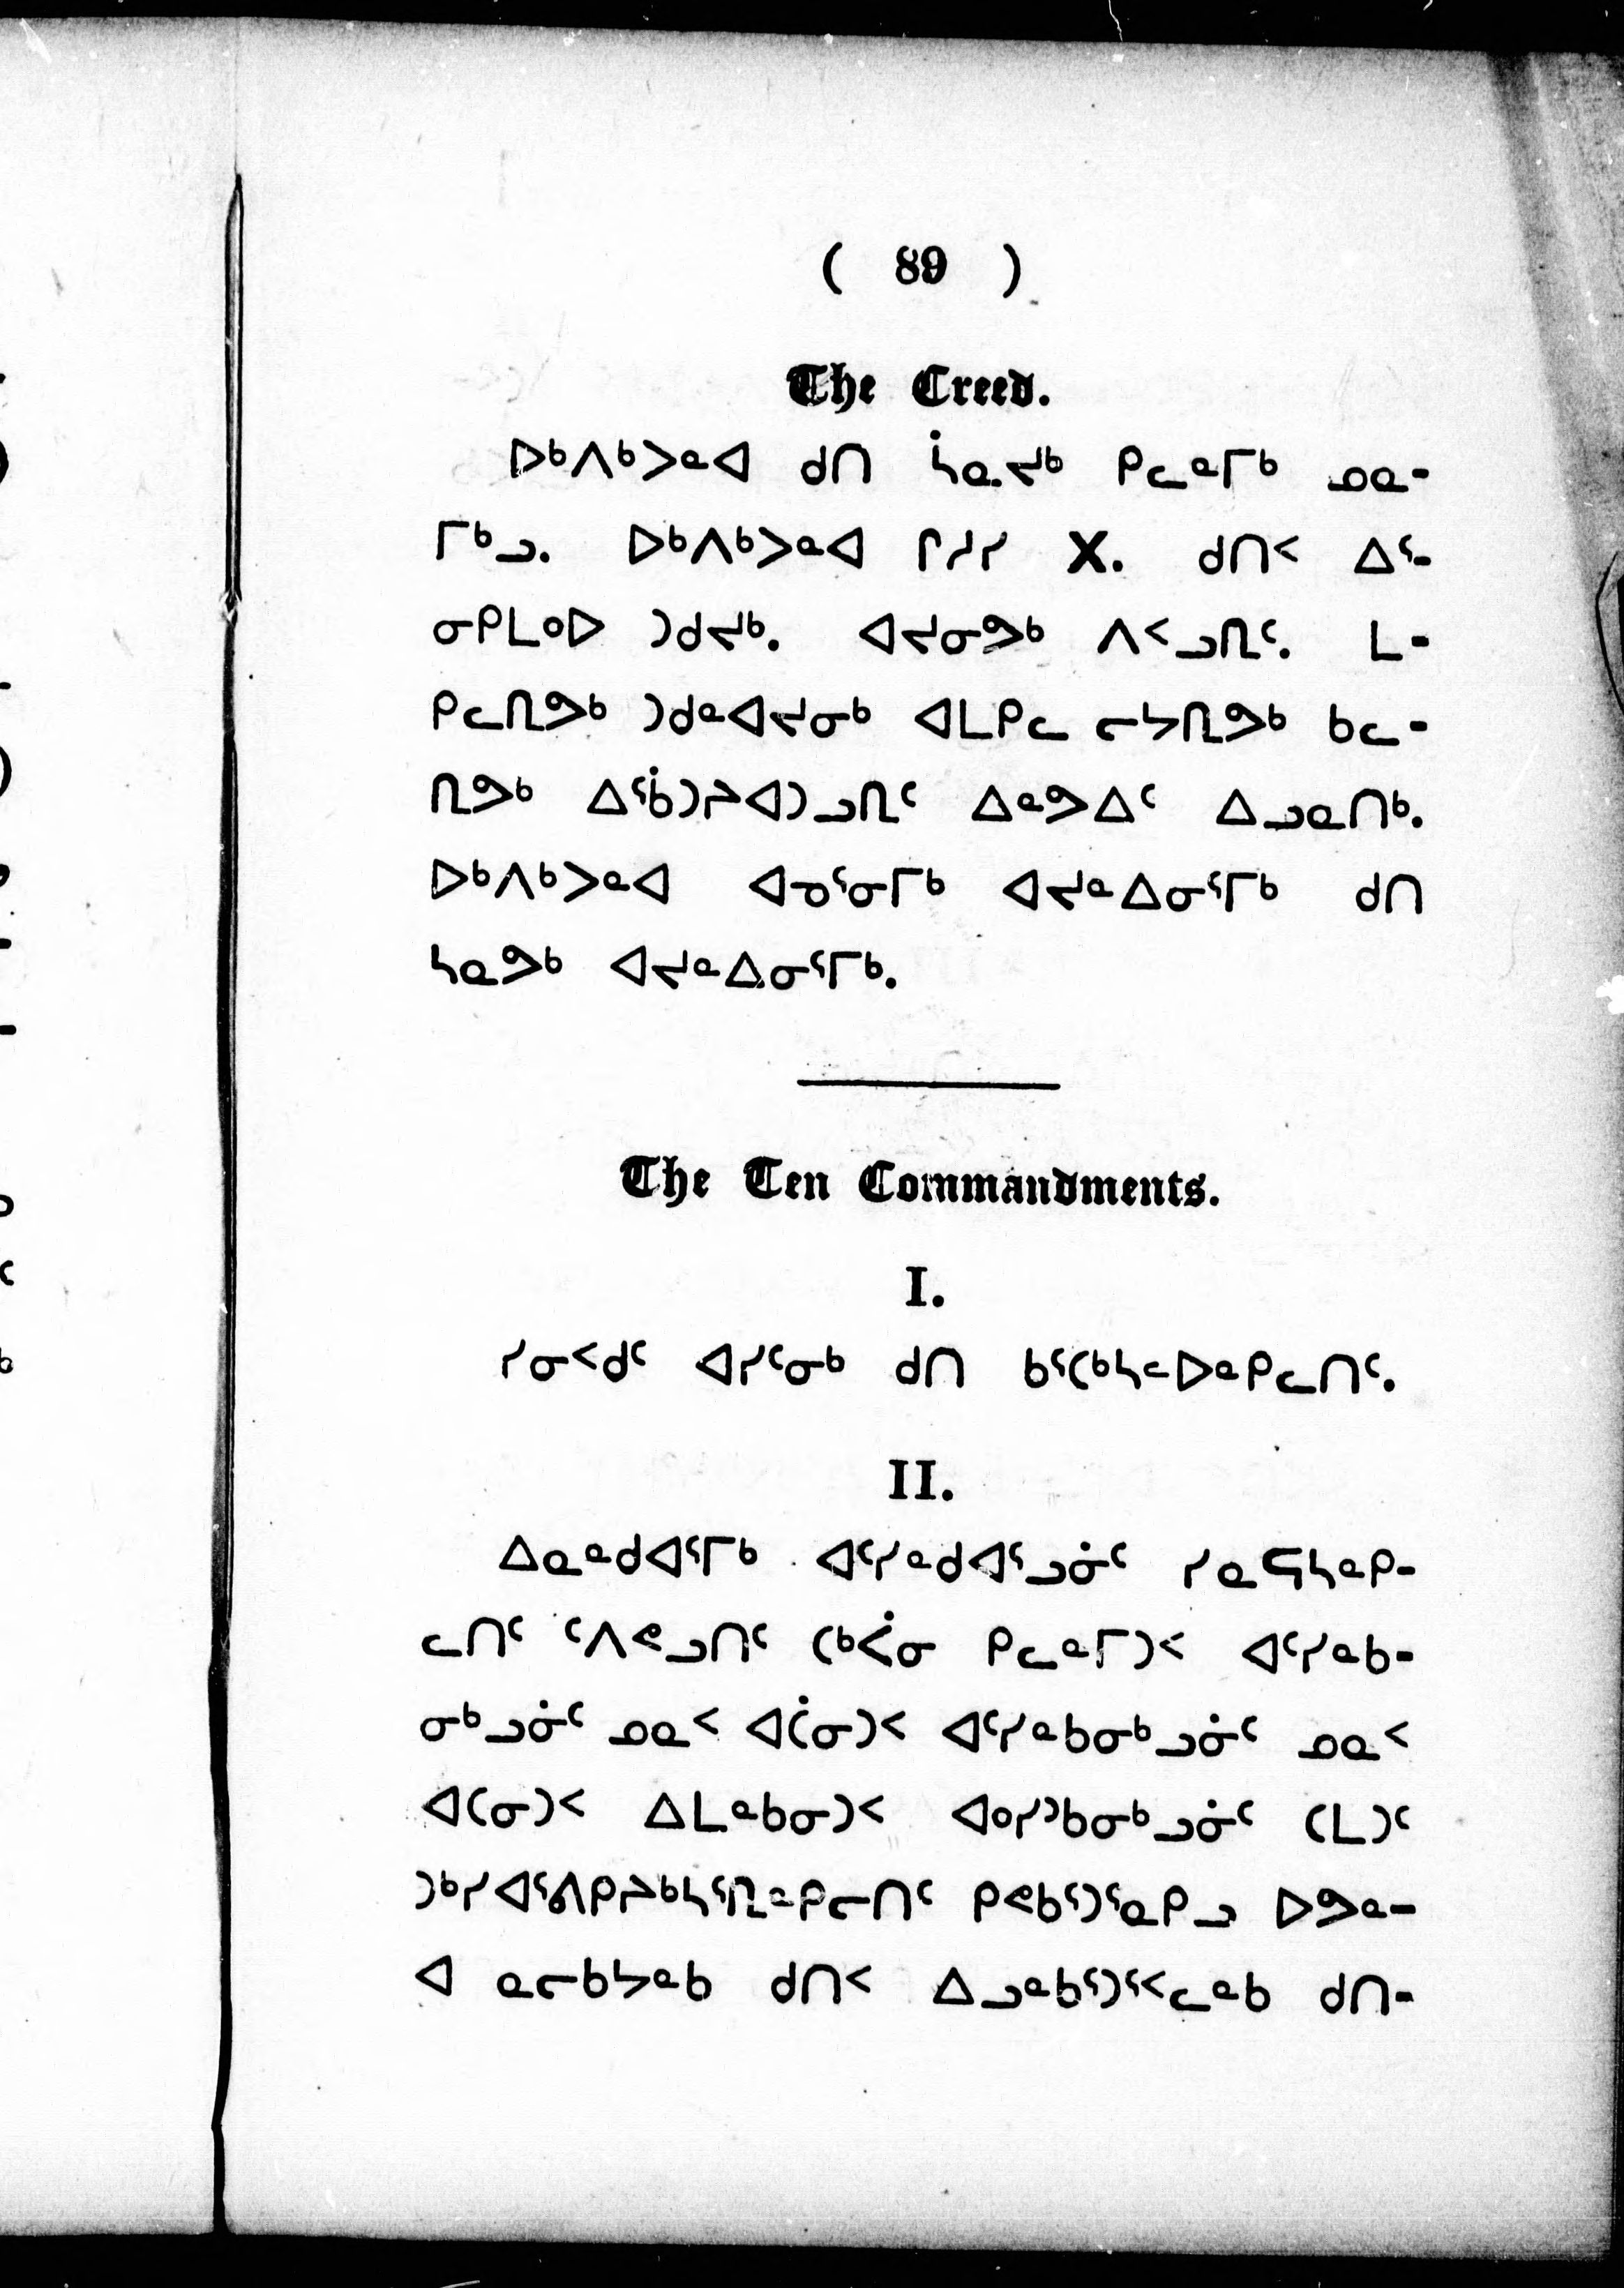 ( 89 )
The Creed.
ᐅᒃᐱᒃᐳᓐᐊ ᑯᑎ ᓵᓇᔪᒃ ᑭᓚᓐᒥᒃ ᓄᓇ-
ᒥᒃᓗ. ᐅᒃᐱᒃᐳᓐᐊ ᒋᓱᓯ X. ᑯᑎᑉ ᐃᕐ-
ᓂᑭᒪᐤᐅ ᑐᑯᔪᒃ. ᐊᔪᓂᕗᒃ ᐱᑉᓗᒋᑦ. ᒪ-
ᑭᓚᒋᕗᒃ ᑐᑯᓐᐊᔪᓂᒃ ᐊᒪᑭᓚ ᓕᔭᒋᕗᒃ ᑲᓚ-
ᒋᕗᒃ ᐃᕐᖄᑐᔨᐊᑐᓗᒋᑦ ᐃᓐᕗᐃᑦ ᐃᓗᓇᑎᒃ.
ᐅᒃᐱᒃᐳᓐᐊ ᐊᓀᕐᓂᒥᒃ ᐊᔪᓐᐃᓂᕐᒥᒃ ᑯᑎ
ᓴᓇᕗᒃ ᐊᔪᓐᐃᓂᕐᒥᒃ.
The Ten Commandments.
I.
ᓯᓂᑉᑯᑦ ᐊᓯᑦᓂᒃ ᑯᑎ ᑲᕐᑕᒃᓴᓪᐅᓐᑭᓚᑎᑦ.
II.
ᐃᓇᓐᑯᐊᕐᒥᒃ ᐊᑦᓯᓐᑯᐊᕐᓗᓃᑦ ᓯᓇᕋᓴᓐᑭ-
ᓚᑎᑦ ᑦᐱᕙᓗᑎᑦ ᑕᒃᐹᓂ ᑭᓚᓐᒥᑐᑉ ᐊᑦᓯᓐᑲ-
ᓂᒃᓗᓃᑦ ᓄᓇᑉ ᐊᑖᓂᑐᑉ ᐊᑦᓯᓐᑲᓂᒃᓗᓃᑦ ᓄᓇᑉ
ᐊᑕᓂᑐᑉ ᐃᒪᓐᑲᓂᑐᑉ ᐊᐤᓯᐣᑲᓂᒃᓗᓃᑦ ᑕᒪᑐᑦ
ᑭᕙᑲᕐᑐᕐᓇᑭᓗ ᐅᕗᓐ-
ᐊ ᓇᓕᑲᔭᓐᑲ ᑯᑎᑉ ᐃᓗᓐᑲᕐᑐᕐᑉᓚᓐᑲ ᑯᑎ-